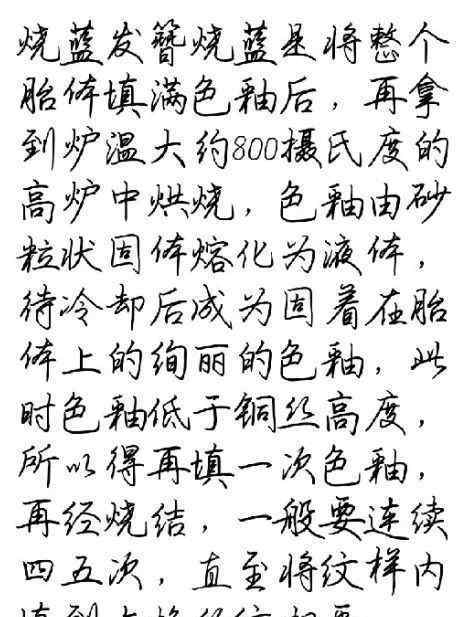 烧蓝发簪烧蓝是将整个
胎体填满色釉后，再拿
到炉温大约800摄氏度的
高炉中烘烧，色釉由砂
粒状固体熔化为液体，
待冷却后成为固着在胎
体上的绚丽的色釉，此
时色釉低于铜丝高度，
所以得再填一次色釉，
再经烧结，一般要连续
四五次，直至将纹样内